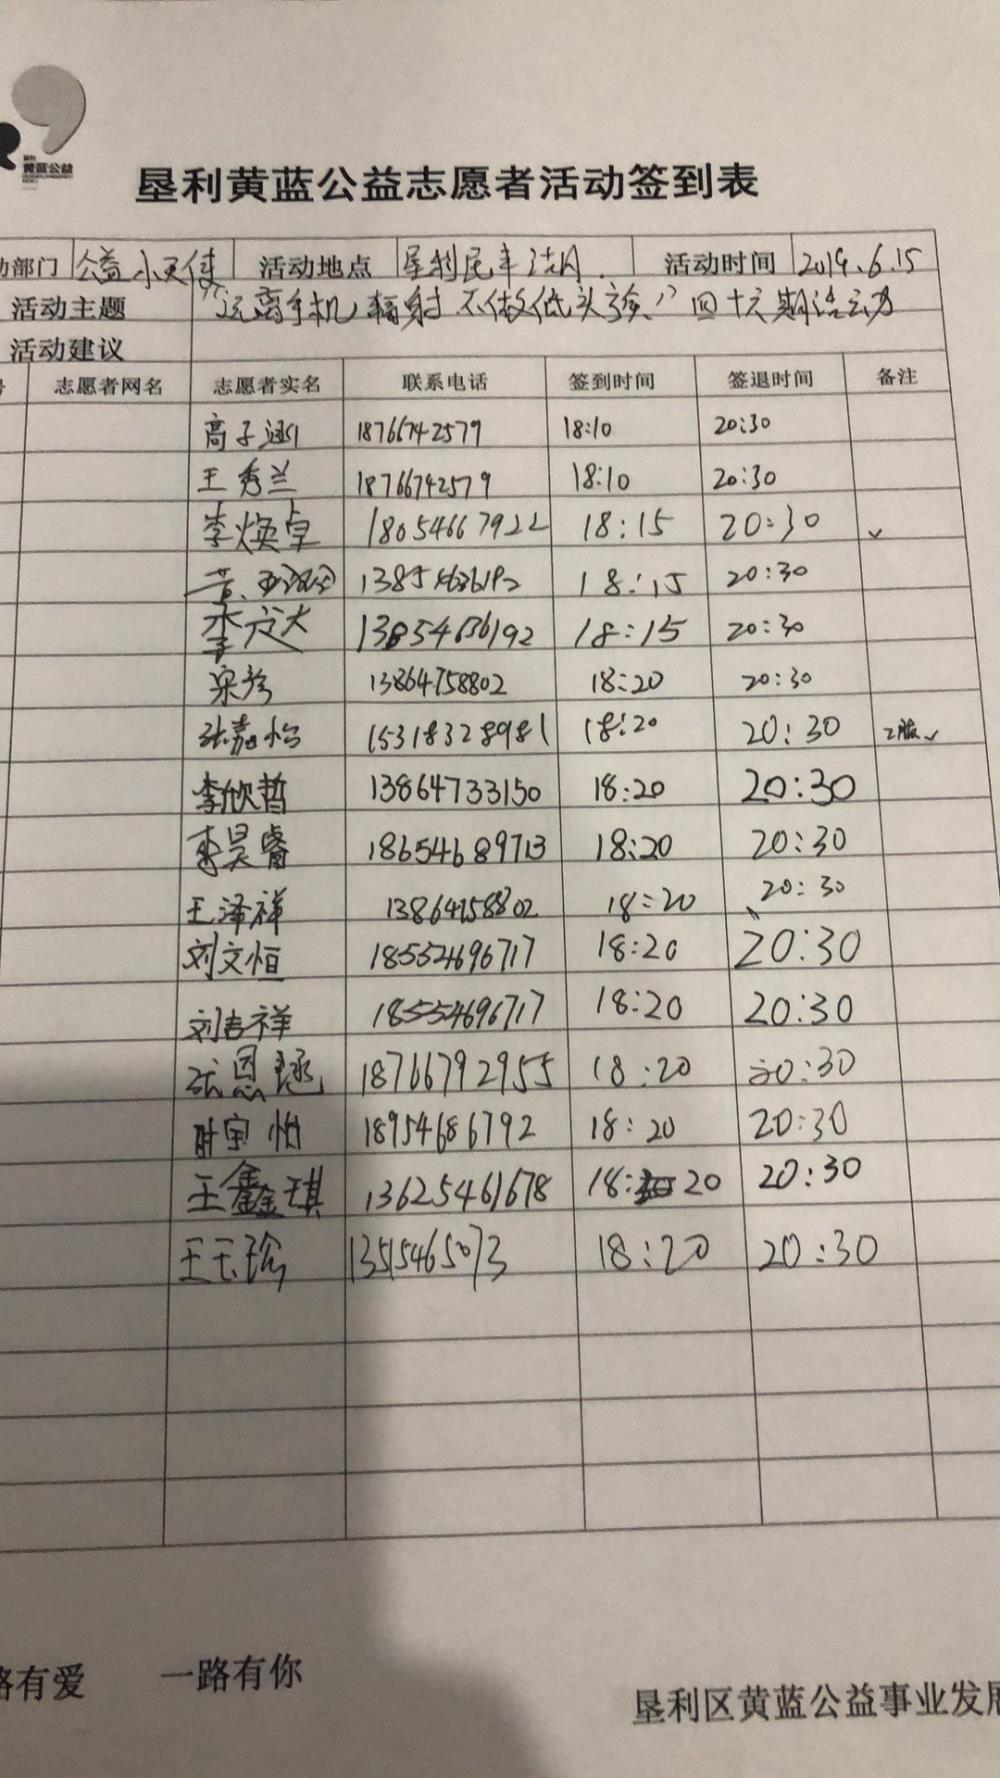 黄蓝公益
垦利黄蓝公益志愿者活动签到表
动部门 公益小天使 活动地点 垦利民丰 活动时间 2019.6.15
活动主题 "远离手机辐射 不做低头 " 四十六期活动
活动建议
号 志愿者网名 志愿者实名 联系电话 签到时间 签退时间 备注
高子涵 18766742579 18:10 20:30
王秀兰 18766742579 18:10 20:30
李焕卓 18054667922 18:15 20:30 ✓
黄 18:15 20:30
李 13854636192 18:15 20:30
宋 13864758802 18:20 20:30
张嘉怡 15318328981 18:20 20:30 ✓
李欣哲 13864733150 18:20 20:30
李昊睿 18654689713 18:20 20:30
王泽祥 13864758802 18:20 20:30
刘文恒 18554696717 18:20 20:30
刘吉祥 18554696717 18:20 20:30
张恩 18766792955 18:20 20:30
时宝怡 18954686792 18:20 20:30
王鑫琪 13625461678 18:20 20:30
王玉珍 13515465073 18:20 20:30
路有爱 一路有你
垦利区黄蓝公益事业发展